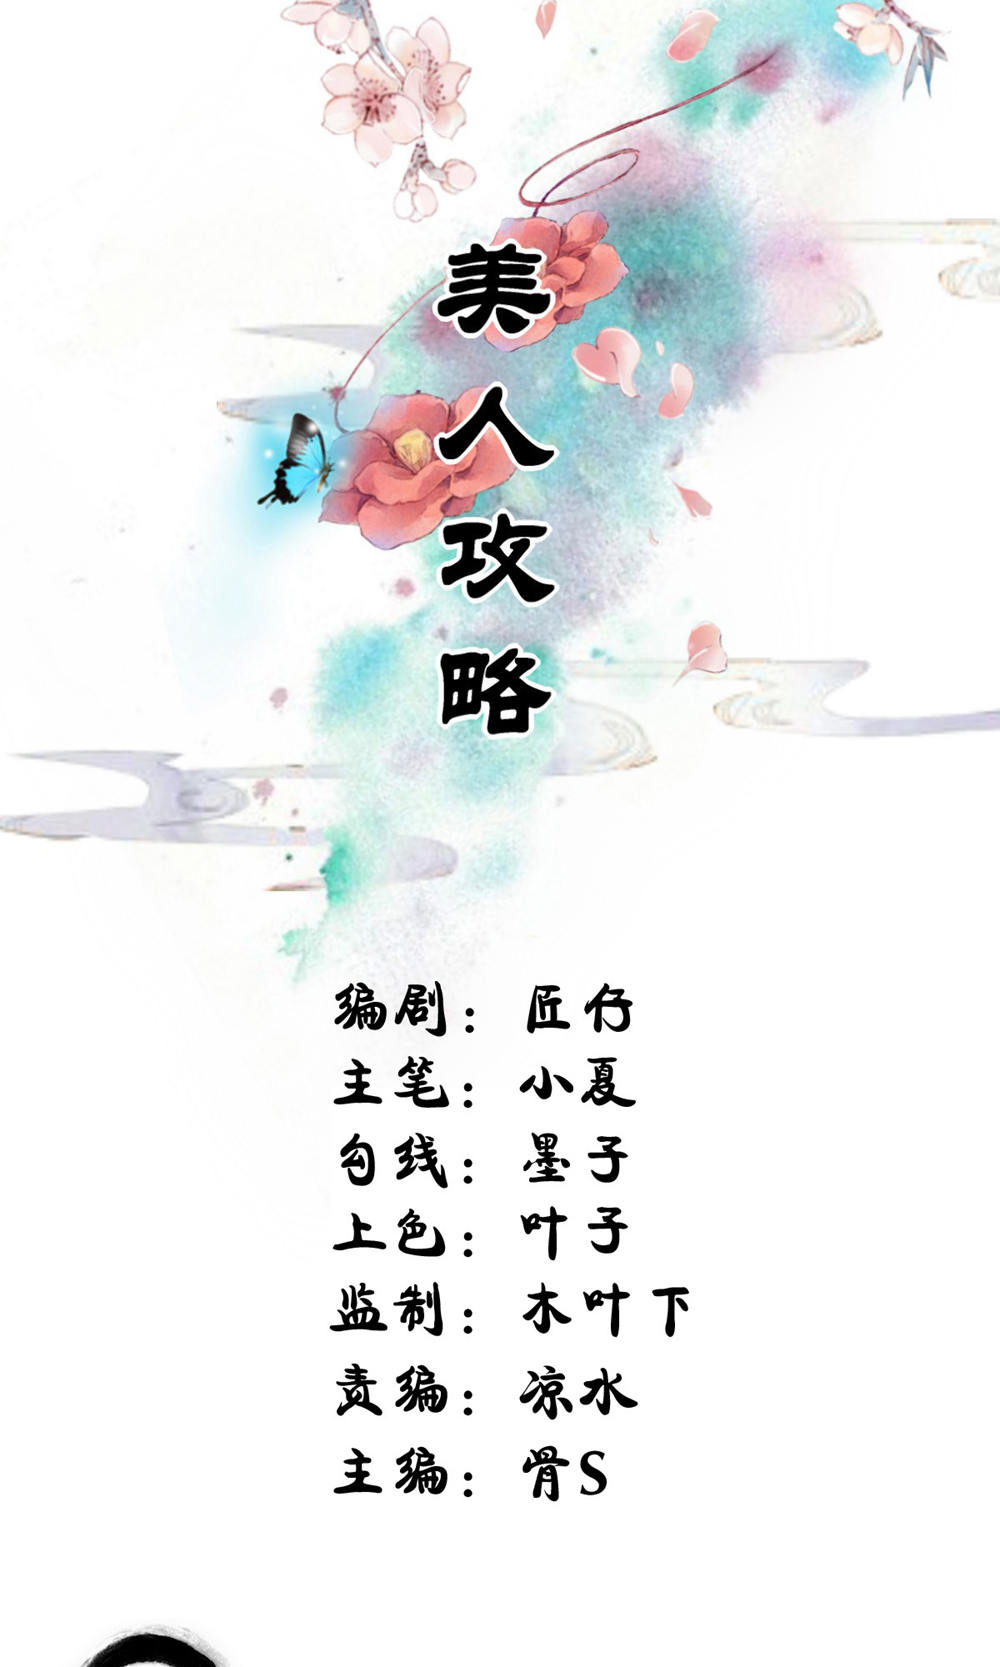 美人攻略
编剧：匠仔
主笔：小夏
勾线：墨子
上色：叶子
监制：木叶下
责编：凉水
主编：骨S